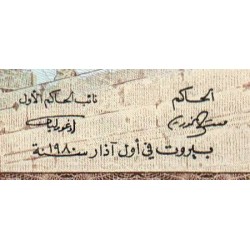 الحاكم
نائب الحاكم الأول
بيروت في أول آذار سنة ١٩٨٠